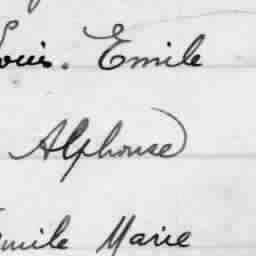 Louis. Emile
Alphonse
Emile Marie